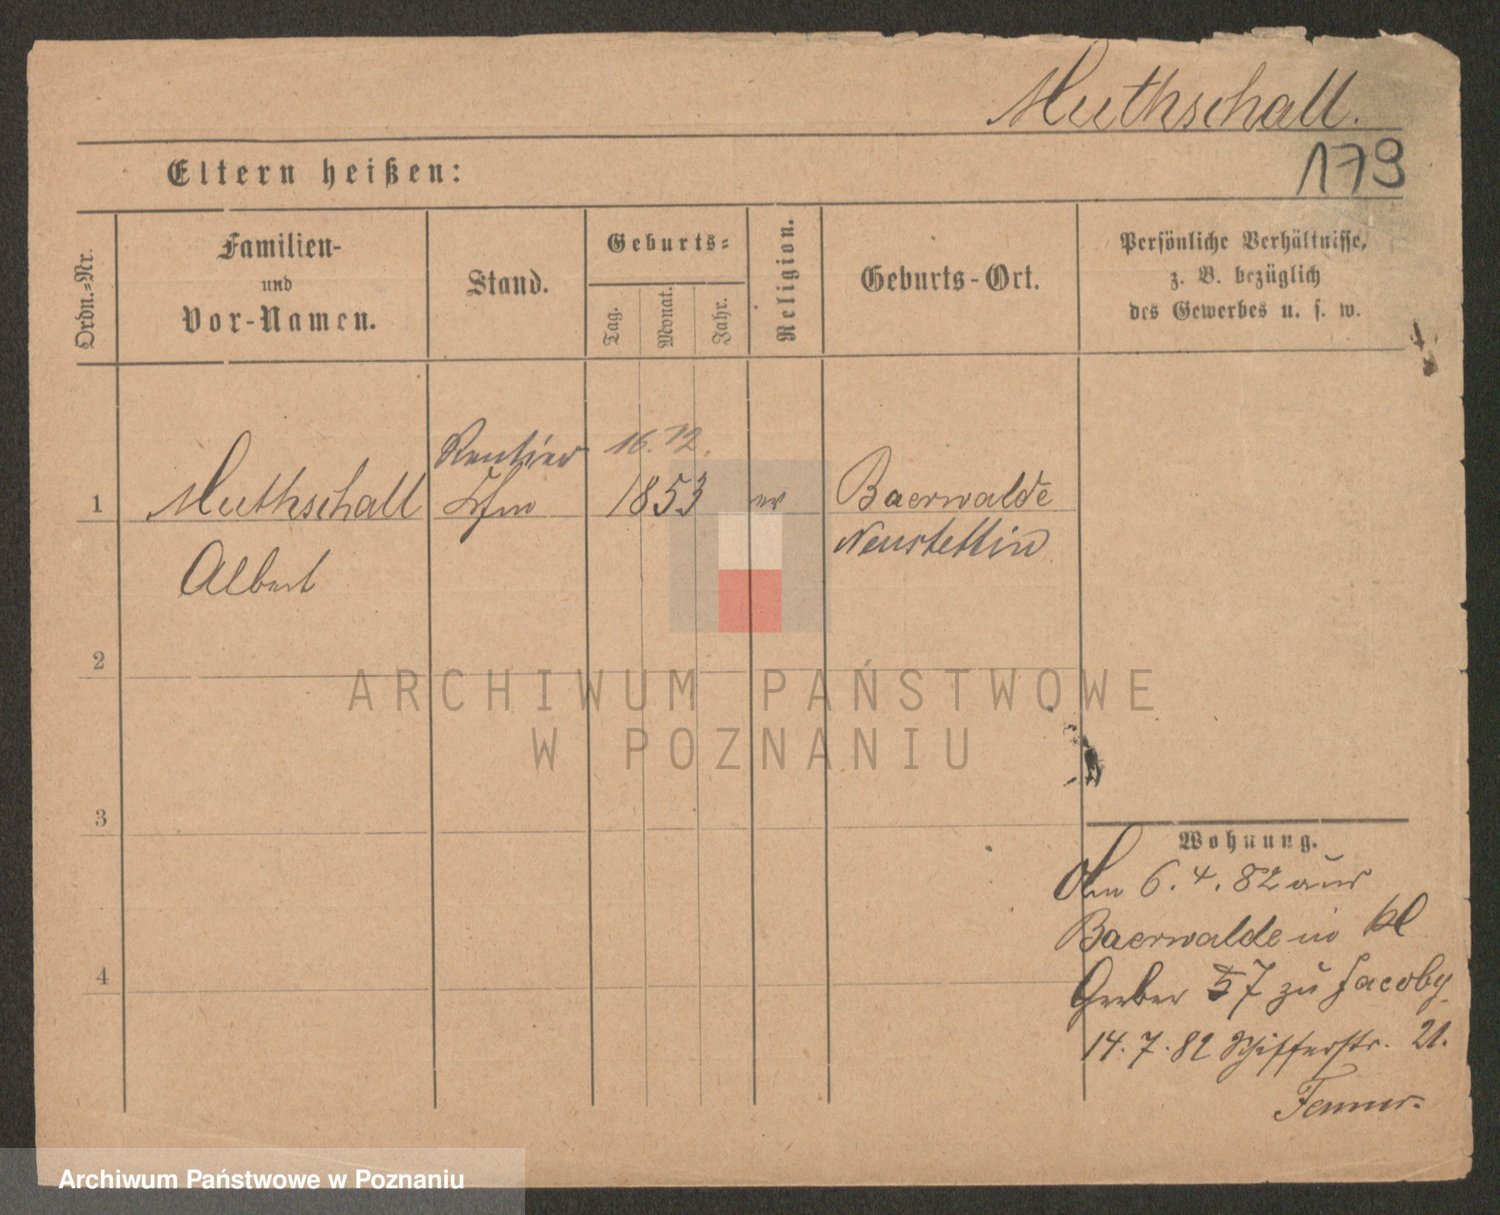 Muthschall.
179
Eltern heißen:
Ordn.=Nr.
Familien-
und
Vor-Namen.
Stand.
Geburts=
Tag.
Monat.
Jahr.
Religion.
Geburts-Ort.
Persönliche Verhältnisse,
z. B. bezüglich
des Gewerbes u. s. w.
Rentier 16. 12.
1 Muthschall 1853 ev Baerwalde
Albert Neustettin
2
ARCHIWUM PAŃSTWOWE
W POZNANIU
3
Wohnung.
6. 4. 82 aus
Baerwalde in kl
Gerber 57 zu Jacoby
4
14. 7. 82 Schifferstr. 21.
Archiwum Państwowe w Poznaniu